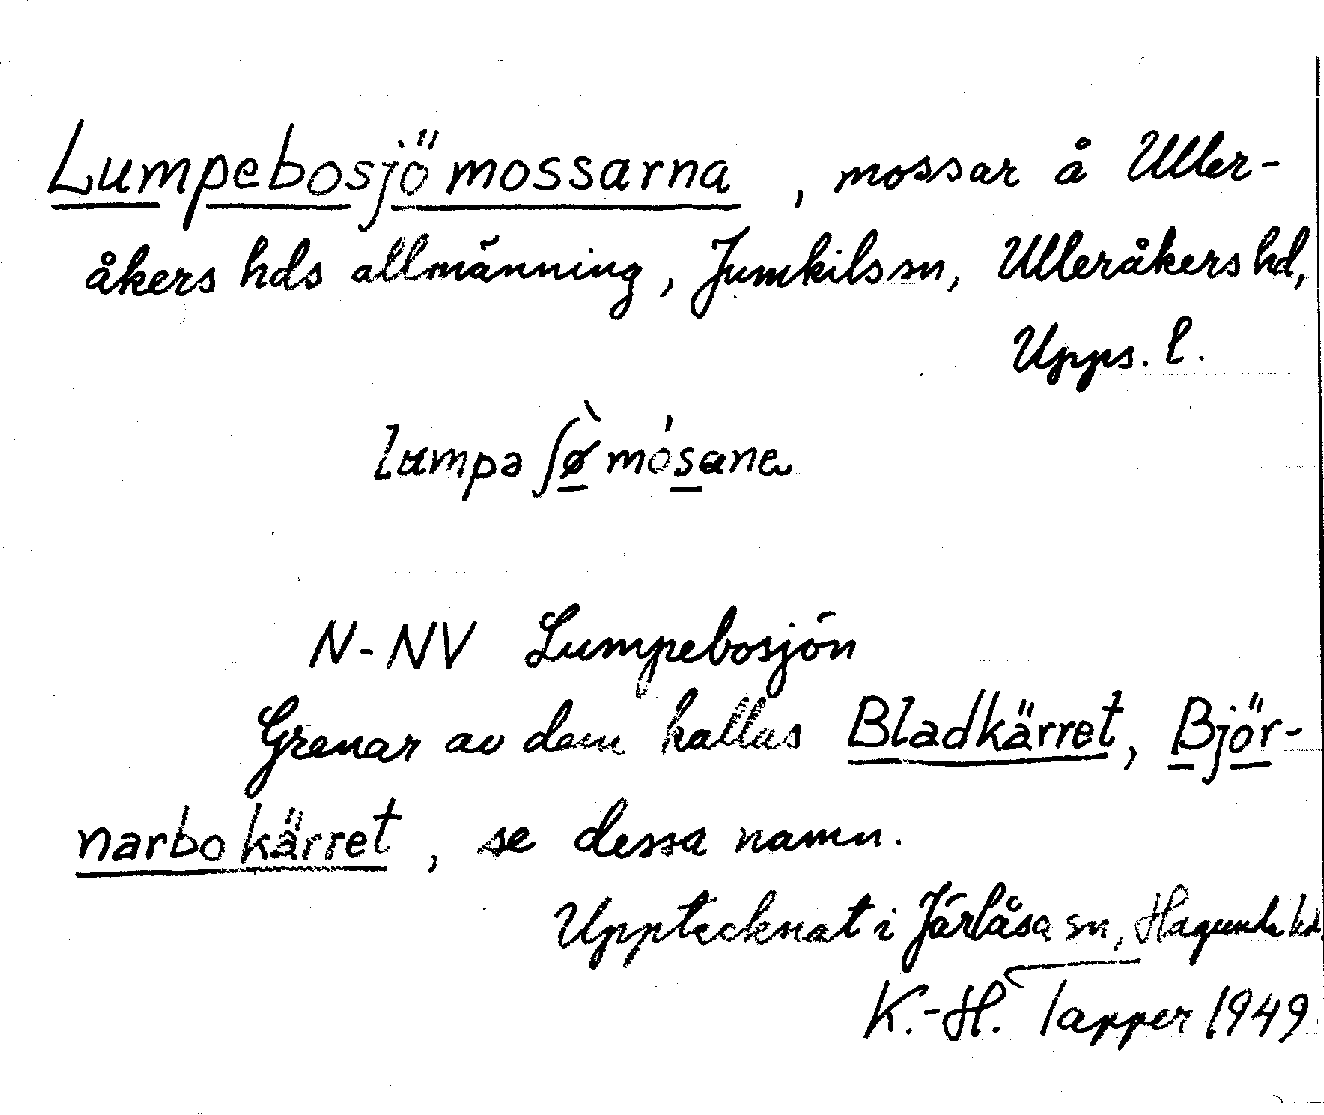 Lumpebosjömossarna, mossar å Uller-
åkers hds allmänning, Jumkils sn, Ulleråkers hd,
Upps. l.
lumpə ʃø̀ mósane
N-NV Lumpebosjön
Grenar av dem kallas Bladkärret, Björ-
narbokärret, se dessa namn.
Upptecknat i Järlåsa sn, Hagunda hd
K.-H. Tapper 1949